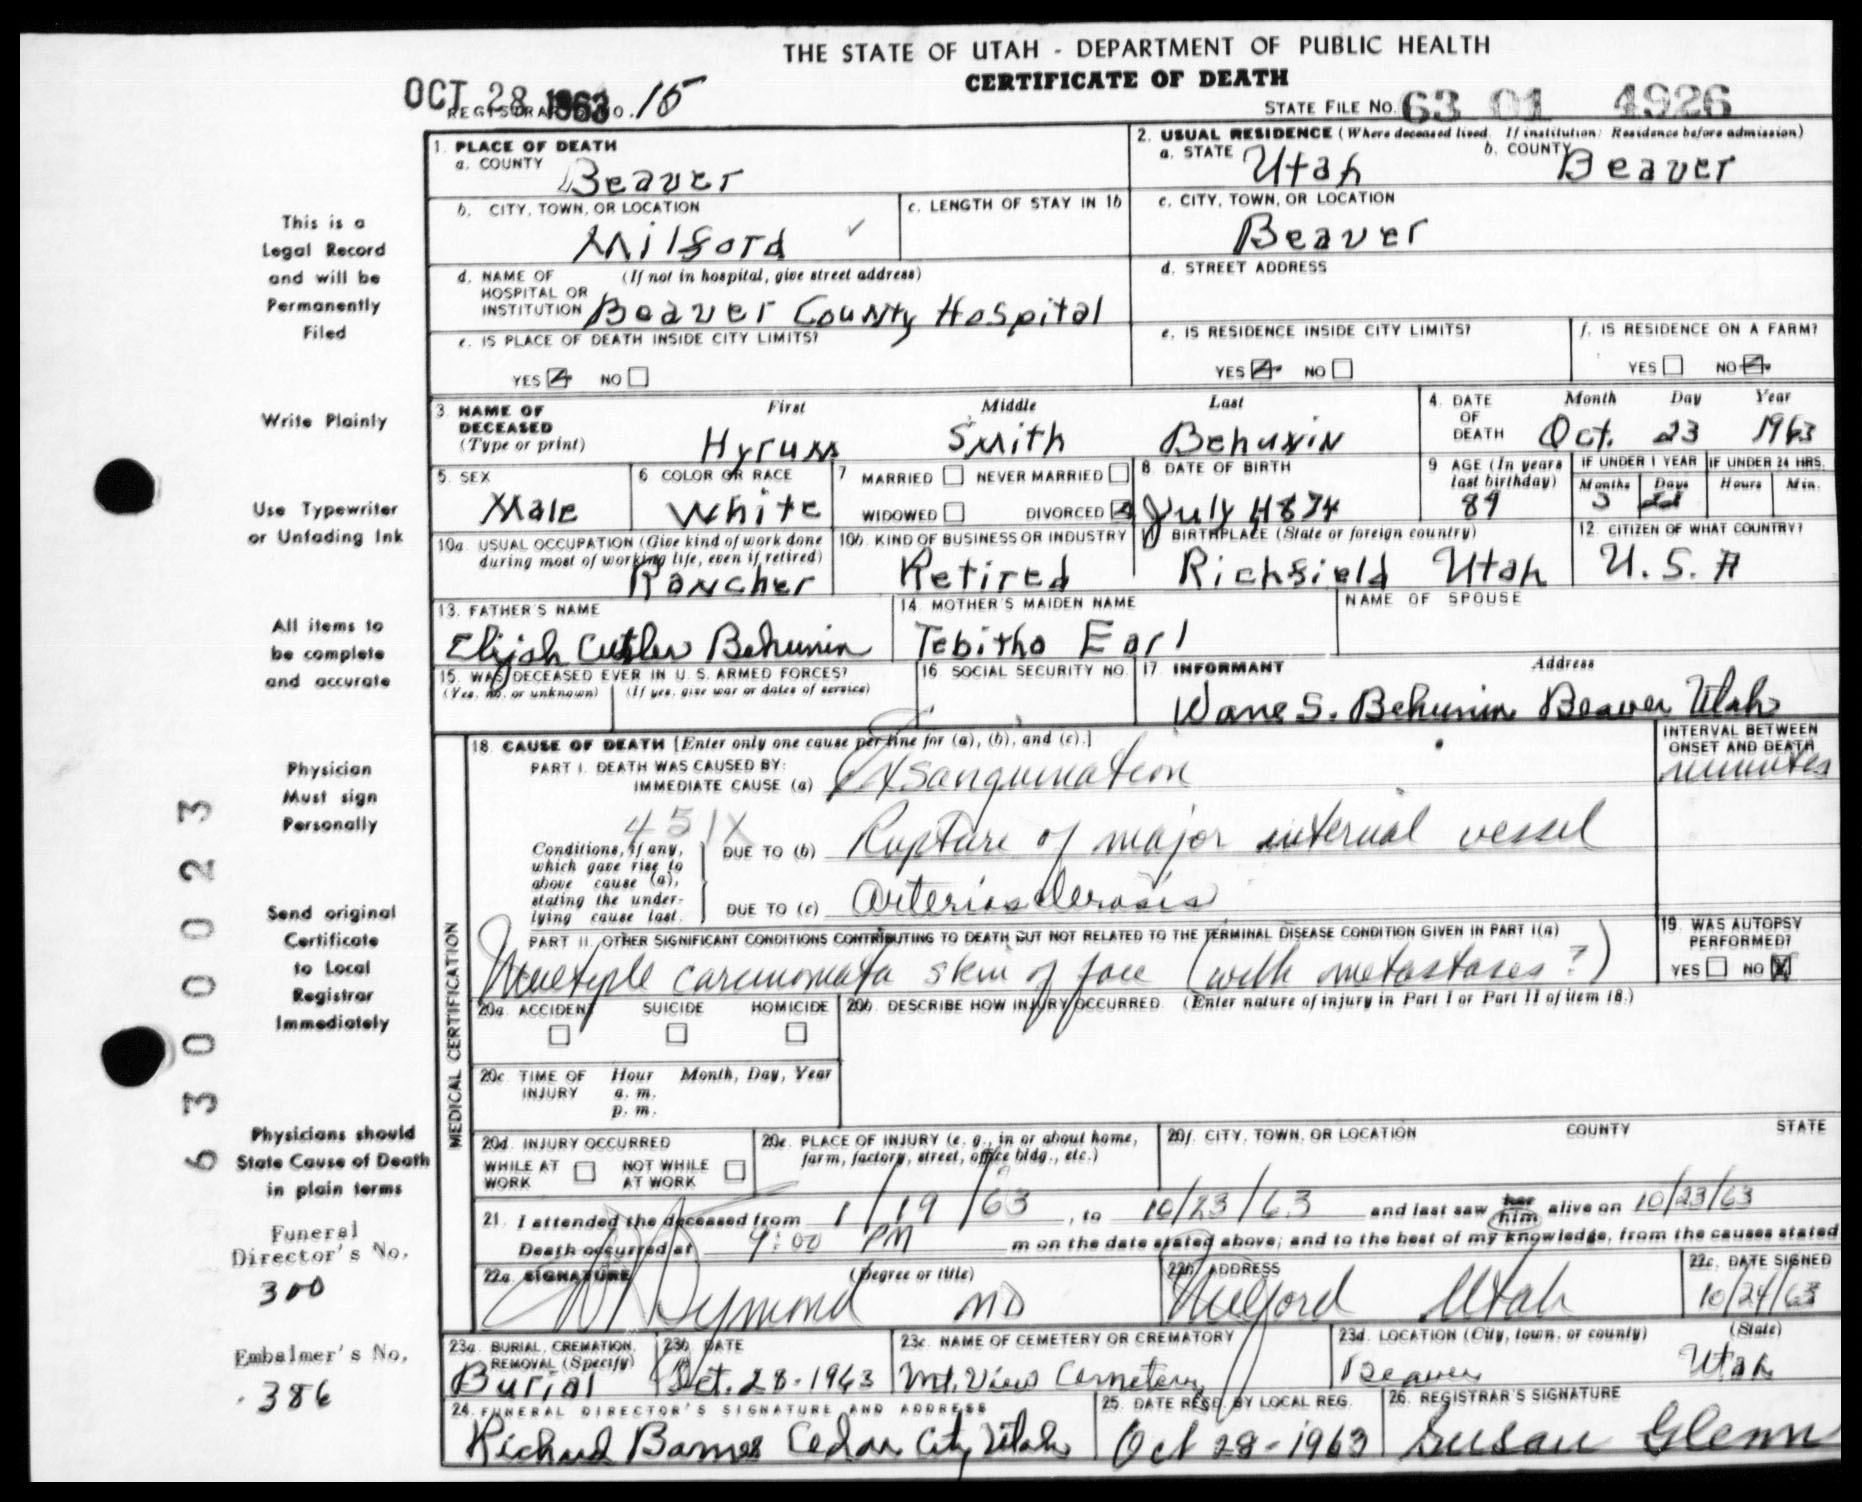 THE STATE OF UTAH - DEPARTMENT OF PUBLIC HEALTH
CERTIFICATE OF DEATH
OCT 28 1963
REGISTRAR'S NO. 15
STATE FILE NO. 63 01 4926
1. PLACE OF DEATH
a. COUNTY Beaver
2. USUAL RESIDENCE (Where deceased lived. If institution: Residence before admission)
a. STATE Utah b. COUNTY Beaver
b. CITY, TOWN, OR LOCATION Milford
c. LENGTH OF STAY IN 1b
c. CITY, TOWN, OR LOCATION Beaver
d. NAME OF HOSPITAL OR INSTITUTION (If not in hospital, give street address)
Beaver County Hospital
d. STREET ADDRESS
e. IS PLACE OF DEATH INSIDE CITY LIMITS?
YES NO
e. IS RESIDENCE INSIDE CITY LIMITS?
YES NO
f. IS RESIDENCE ON A FARM?
YES NO
3. NAME OF DECEASED (Type or print)
First Middle Last
Hyrum Smith Behunin
4. DATE OF DEATH Month Day Year
Oct. 23 1963
5. SEX Male
6 COLOR OR RACE White
7 MARRIED NEVER MARRIED
WIDOWED DIVORCED
8. DATE OF BIRTH
July
9 AGE (In years last birthday) 89
IF UNDER 1 YEAR Months Days
3
IF UNDER 24 HRS. Hours Min.
10a. USUAL OCCUPATION (Give kind of work done during most of working life, even if retired)
Rancher
10b. KIND OF BUSINESS OR INDUSTRY
Retired
BIRTHPLACE (State or foreign country)
Richfield Utah
12. CITIZEN OF WHAT COUNTRY?
U.S.A
13. FATHER'S NAME
Elijah Cutler Behunin
14. MOTHER'S MAIDEN NAME
Tebitha Earl
NAME OF SPOUSE
15. WAS DECEASED EVER IN U. S. ARMED FORCES?
(Yes, no, or unknown) (If yes, give war or dates of service)
16. SOCIAL SECURITY NO.
17. INFORMANT Address
Wane S. Behunin Beaver Utah
MEDICAL CERTIFICATION
18. CAUSE OF DEATH [Enter only one cause per line for (a), (b), and (c).]
INTERVAL BETWEEN ONSET AND DEATH
minutes
PART I. DEATH WAS CAUSED BY:
IMMEDIATE CAUSE (a) Exsanguination
451X
Conditions, if any, which gave rise to above cause (a), stating the underlying cause last.
DUE TO (b) Rupture of major internal vessel
DUE TO (c) Arteriosclerosis
PART II. OTHER SIGNIFICANT CONDITIONS CONTRIBUTING TO DEATH BUT NOT RELATED TO THE TERMINAL DISEASE CONDITION GIVEN IN PART I(a)
Multiple carcinomata skin of face (with metastases?)
19. WAS AUTOPSY PERFORMED?
YES NO X
20a. ACCIDENT SUICIDE HOMICIDE
20b. DESCRIBE HOW INJURY OCCURRED. (Enter nature of injury in Part I or Part II of item 18.)
20c. TIME OF INJURY Hour Month, Day, Year
a. m.
p. m.
20d. INJURY OCCURRED
WHILE AT WORK NOT WHILE AT WORK
20e. PLACE OF INJURY (e. g., in or about home, farm, factory, street, office bldg., etc.)
20f. CITY, TOWN, OR LOCATION COUNTY STATE
21. I attended the deceased from 1/19/63, to 10/23/63 and last saw her him alive on 10/23/63
Death occurred at 9:00 PM m on the date stated above; and to the best of my knowledge, from the causes stated
22a. SIGNATURE (Degree or title)
Symond MD
22b. ADDRESS
Milford Utah
22c. DATE SIGNED
10/24/63
23a. BURIAL, CREMATION, REMOVAL (Specify)
Burial
23b. DATE
Oct. 28-1963
23c. NAME OF CEMETERY OR CREMATORY
Mt. View Cemetery
23d. LOCATION (City, town, or county) (State)
Beaver Utah
24. FUNERAL DIRECTOR'S SIGNATURE AND ADDRESS
Richard Barnes Cedar City Utah
25. DATE RESD. BY LOCAL REG.
Oct 28-1963
26. REGISTRAR'S SIGNATURE
Susan Glenn
This is a
Legal Record
and will be
Permanently
Filed
Write Plainly
Use Typewriter
or Unfading Ink
All items to
be complete
and accurate
Physician
Must sign
Personally
Send original
Certificate
to Local
Registrar
Immediately
Physicians should
State Cause of Death
in plain terms
Funeral
Director's No.
300
Embalmer's No.
386
6300023